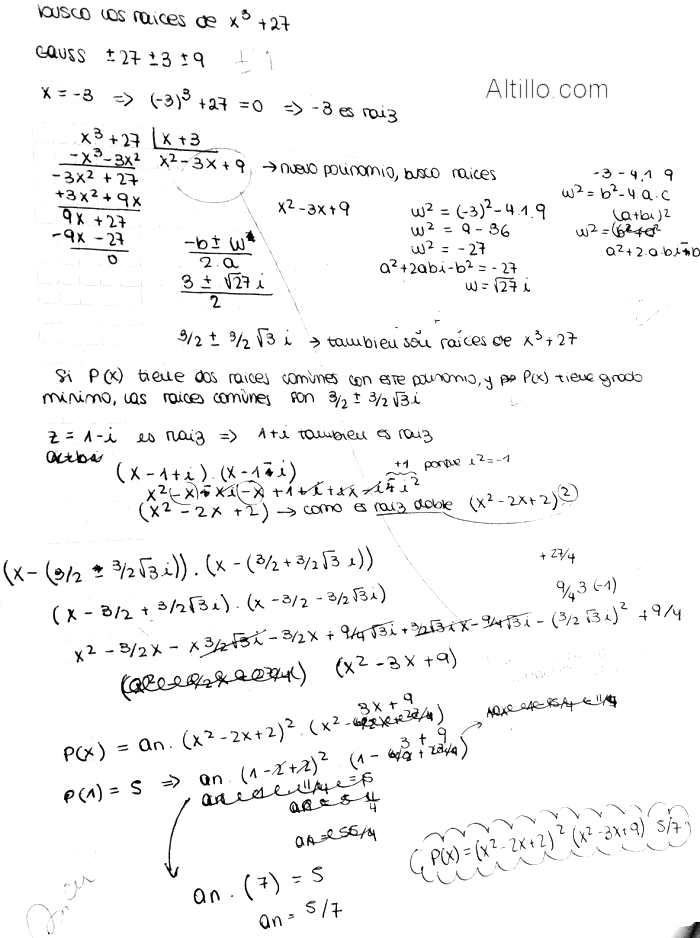 busco las raices de x³ + 27
GAUSS ±27 ±3 ±9 ±1
Altillo.com
x = -3 => (-3)³ + 27 = 0 => -3 es raiz
x³ + 27 | x + 3
-x³ - 3x² x² - 3x + 9 → nuevo polinomio, busco raices
-3x² + 27
+3x² + 9x
9x + 27
-9x - 27
0
x² - 3x + 9
-b ± w
2.a
3 ± √27 i
2
w² = (-3)² - 4.1.9
w² = 9 - 36
w² = -27
a² + 2abi - b² = -27
w = √27 i
-3 - 4.1 9
w² = b² - 4.a.c
(a+bi)²
w² =
a² + 2.a.bi - b
3/2 ± 3/2 √3 i → tambien son raíces de x³ + 27
Si P(x) tiene dos raices comunes con este polinomio, y P(x) tiene grado
minimo, las raices comunes son 3/2 ± 3/2 √3 i
z = 1 - i es raiz => 1+i tambien es raiz
a+bi
(x - 1 + i) . (x - 1 - i)
+1 porque i² = -1
x² - x - xi - x + 1 + i + ix - i - i²
(x² - 2x + 2) → como es raiz doble (x² - 2x + 2)²
(x - (3/2 - 3/2 √3 i)) . (x - (3/2 + 3/2 √3 i))
+ 27/4
(x - 3/2 + 3/2 √3 i) . (x - 3/2 - 3/2 √3 i)
9/4 3 (-1)
x² - 3/2x - x 3/2 √3 i - 3/2x + 9/4 √3 i + 3/2 √3 i x - 9/4 √3 i - (3/2 √3 i)² + 9/4
(x² - 3x + 9)
P(x) = an . (x² - 2x + 2)² . (x² - 3x + 9)
P(1) = 5 => an . (1 - 2 + 2)² . (1 - 3 + 9)
an . (7) = 5
an = 5/7
P(x) = (x² - 2x + 2)² (x² - 3x + 9) 5/7